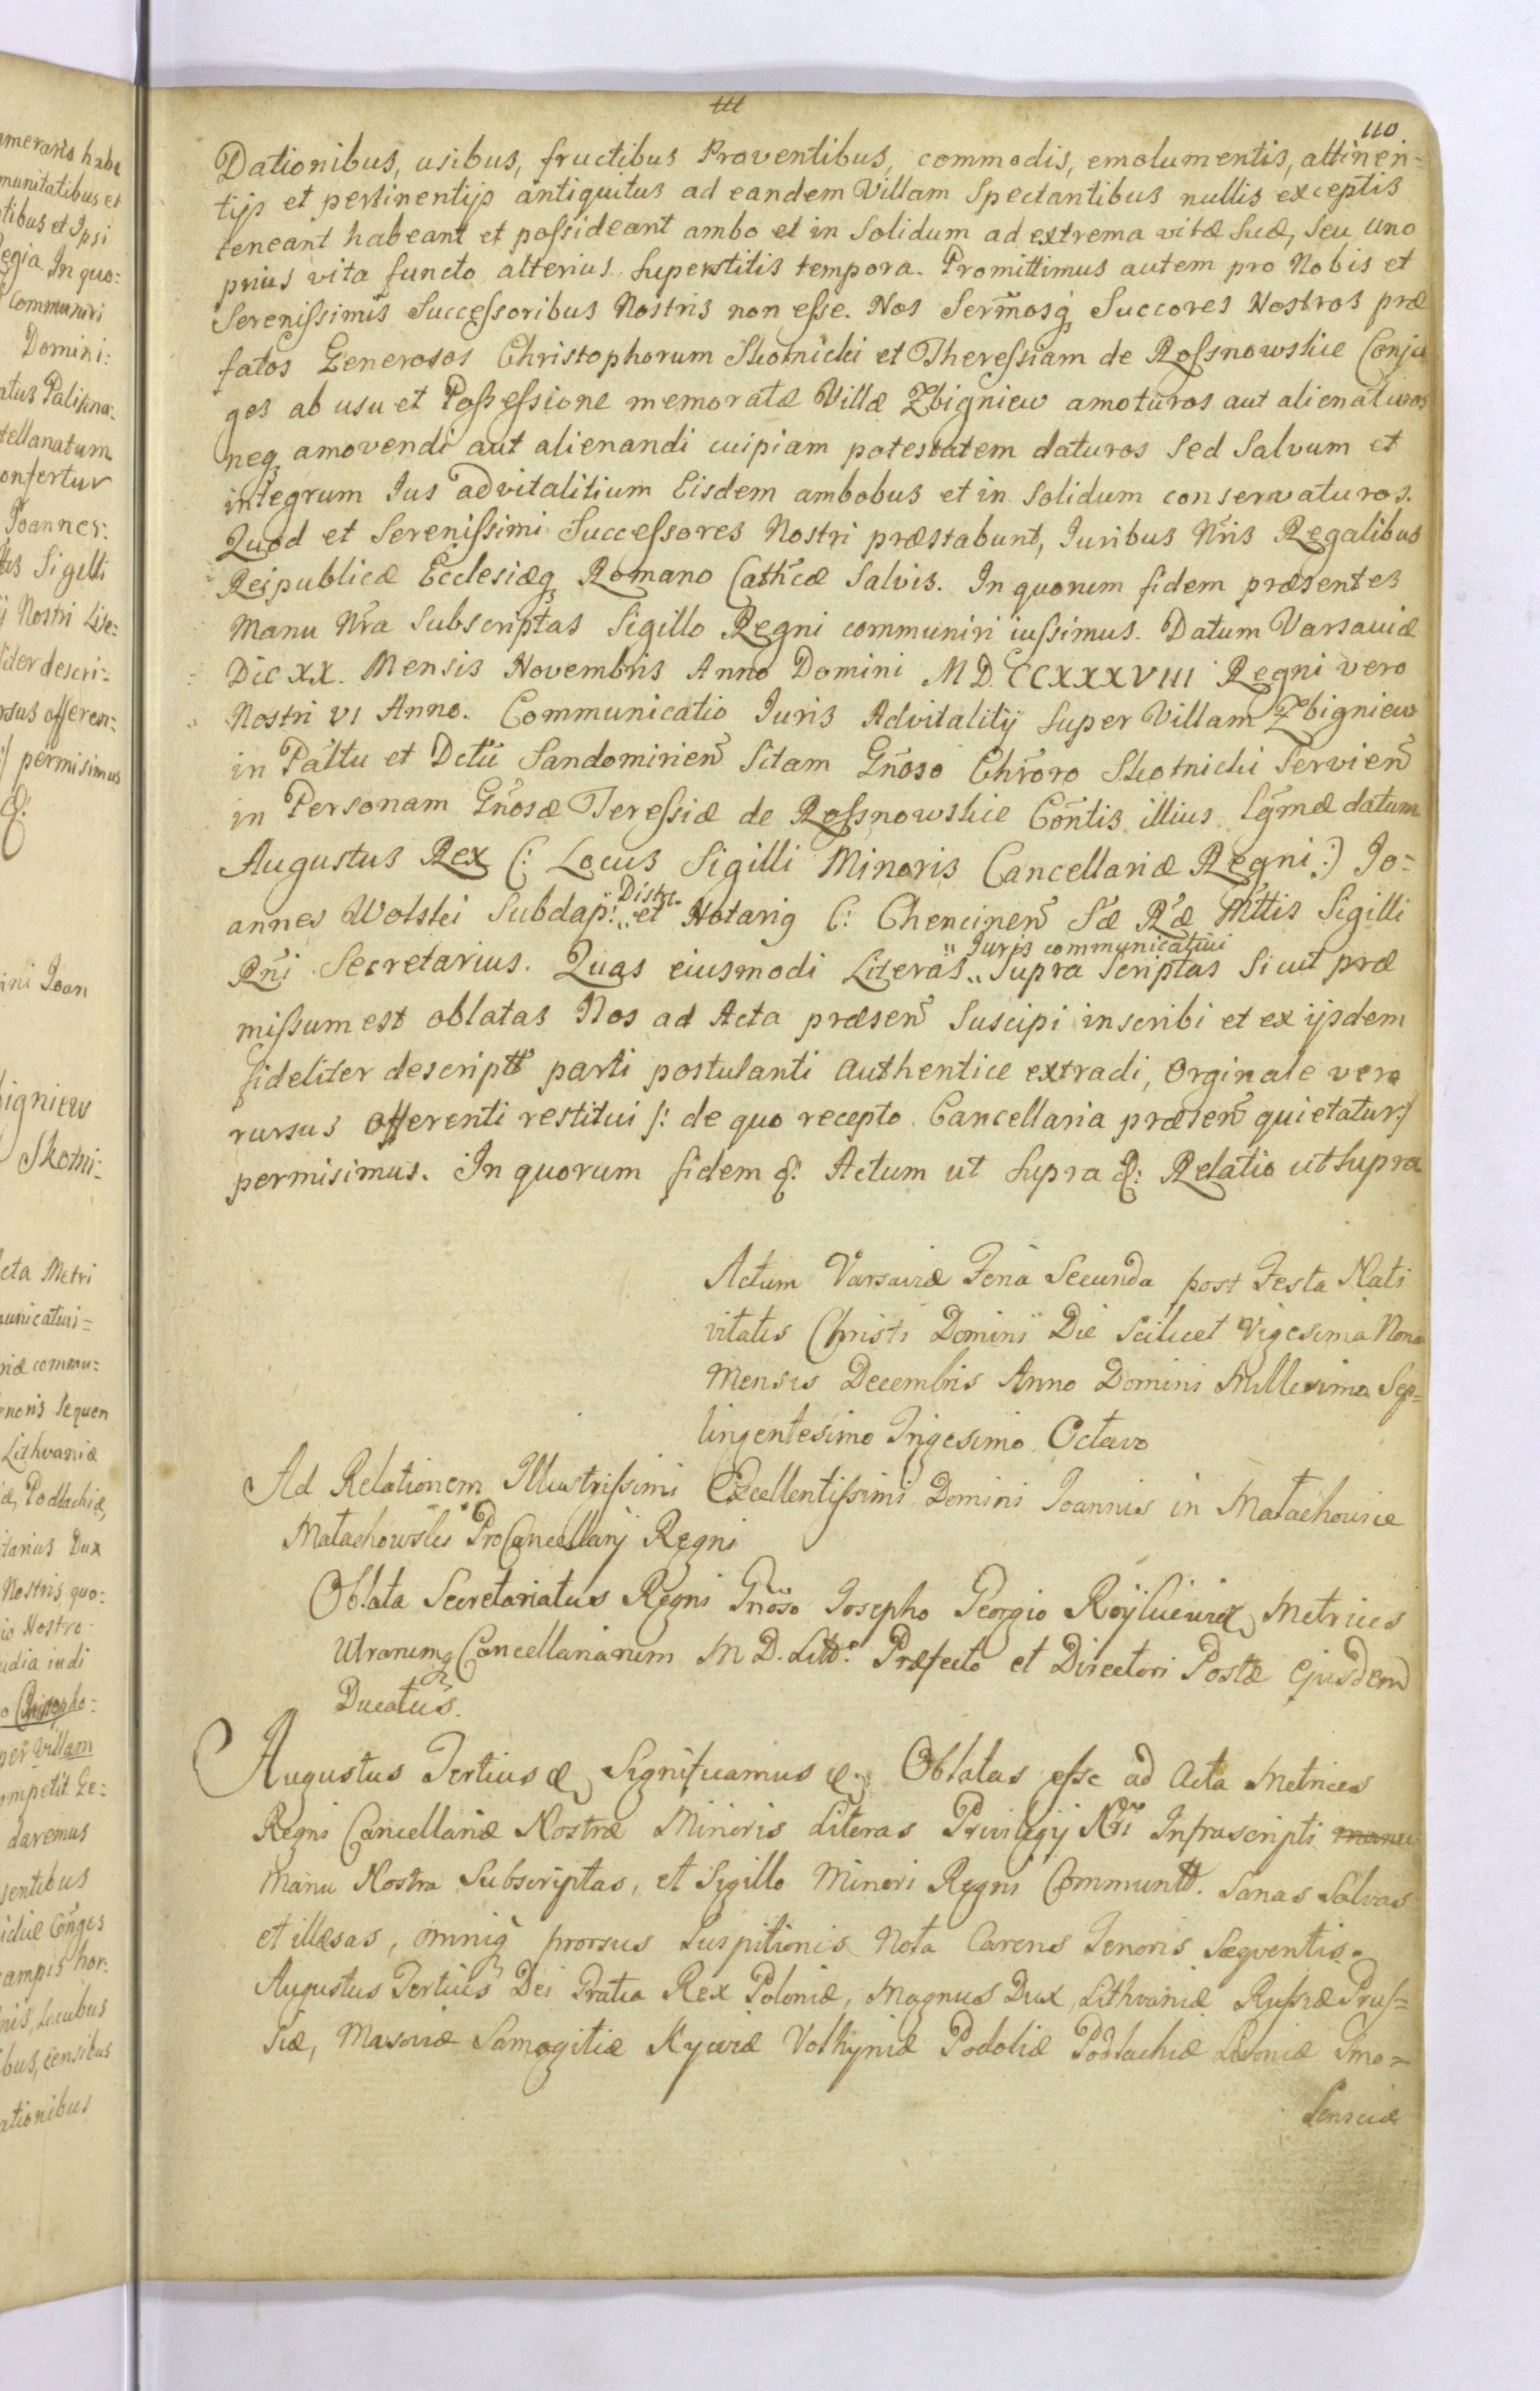 111
110
Dationibus, usibus, fructibus Proventibus, commodis, emolumentis, attinen=
tijs et pertinentijs antiquitus ad eandem Villam Spectantibus nullis exceptis
teneant habeant et possideant ambo et in Solidum ad extrema vitæ suæ, seu uno
prius vita functo alterius Superstitis tempora. Promittimus autem pro Nobis et
Serenissimis Successoribus Nostris non esse. Nos Serm̃osq; Succores Nostros præ
fatos Generosos Christophorum Skotnicki et Theressiam de Rossnowskie Conju
ges ab usu et Possessione memoratæ Villæ Zbigniew amoturos aut alienaturos
neq; amovendi aut alienandi cuipiam potestatem daturos Sed Salvum et
integrum Ius advitalitium Eisdem ambobus et in Solidum conservaturos.
Quod et Serenissimi Successores Nostri præstabunt, Iuribus Nr̃is Regalibus
Reipublicæ Ecclesiæq; Romano Cathcæ Salvis. In quorum fidem præsentes
Manu Nr̃a Subscriptas Sigillo Regni communiri iussimus. Datum Varsaviæ
Die XX. Mensis Novembris Anno Domini MDCCXXXVIII Regni vero
Nostri VI Anno. Communicatio Iuris Advitalitij Super Villam Zbigniew
in Pallttu et Dctũ Sandomirien̄ Sitam Gñoso Chr̃oro Skotnicki Servien̄
in Personam Gñosæ Teressiæ de Rossnowskie Cõntis illius Lg̃mæ datum
Augustus Rex (: Locus Sigilli Minoris Cancellariæ Regni :) Jo=
annes Wolski Subdap: et Notarig (: Chencinen̄ Sæ Ræ Mttis Sigilli
Distr.
Rñi Secretarius. Quas eiusmodi Literas Supra Scriptas Sicut præ
Iuris communicativi
missum est oblatas Nos ad Acta præsen̄ Suscipi inscribi et ex ijsdem
fideliter descriptt parti postulanti authentice extradi, Orginale vero
rursus offerenti restitui /: de quo recepto Cancellaria præsen̄ quietatur :/
permisimus. In quorum fidem &: Actum ut Supra &: Relatio ut Supra
Actum Varsaviæ Feria Secunda post Festa Nati
vitatis Christi Domini Die Scilicet Vigesima Nona
Mensis Decembris Anno Domini Millesimo Sep=
tingentesimo Trigesimo Octavo
Ad Relationem Illustrissimi Excellentissimi Domini Joannis in Małachowice
Małachowski ProCancellarij Regni
Oblata Secretariatus Regni Gñoso Josepho Georgio Metrices
Utrarumq; Cancellariarum M D. Litt: Præfecto et Directori Postæ Ejusdem
Ducatus.
Augustus Tertius & Significamus &. Oblatas esse ad Acta Metrices
Regni Cancellariæ Nostræ Minoris Literas Privilegij Nri Infrascripti manu
Manu Nostra Subscriptas, et Sigillo Minori Regni Communitt. Sanas Salvas
et illæsas, omniq; prorsus Suspitionis Nota Carens Tenoris Sæqventis.
Augustus Tertius Dei Gratia Rex Poloniæ, Magnus Dux Lithvaniæ Russiæ Prus=
siæ, Masoviæ Samogitiæ Kyoviæ Volhyniæ Podoliæ Podlachiæ Livoniæ Smo=
lensciæ